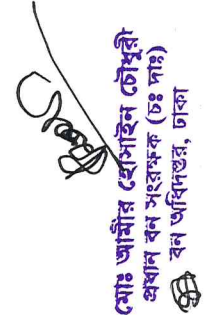 মোঃ আমীর হোসাইন চৌধুরী
প্রধান বন সংরক্ষক (চঃ দাঃ)
বন অধিদপ্তর, ঢাকা